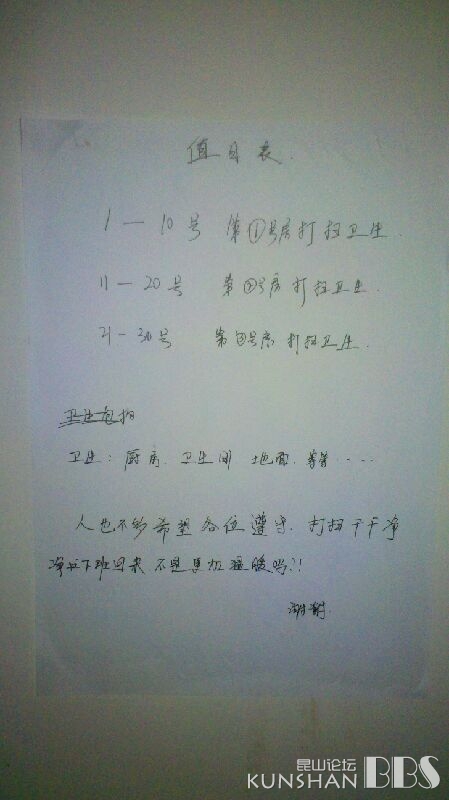 值日表.
1—10号 第①号房打扫卫生.
11—20号 第②号房打扫卫生.
21-30号 第③号房打扫卫生.
卫生包括
卫生：厨房、卫生间 地面、等等……
人也不多希望各位遵守.打扫干干净
净的下班回来不是更加温暖吗?!
谢谢.
昆山论坛
KUNSHAN BBS